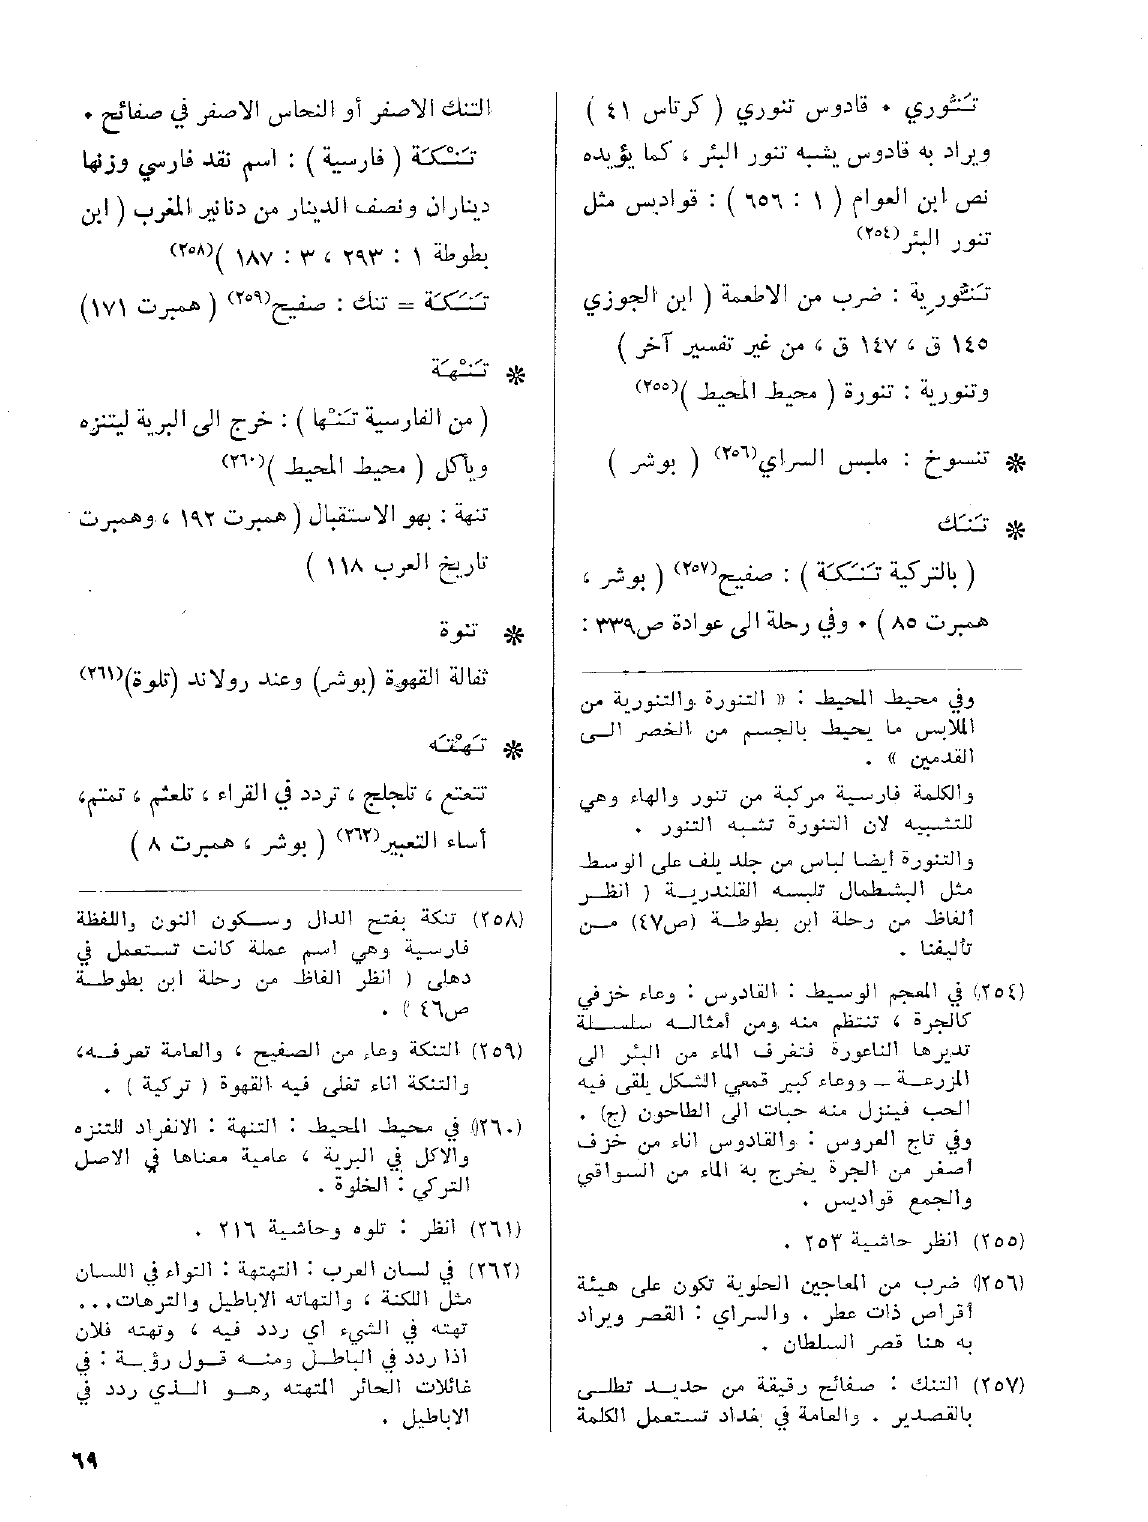 تَنُّوري ٠ قادوس تنوري ( كرتاس ٤١ )
ويراد به قادوس يشبه تنور البئر ، كما يؤيده
نص ابن العوام ( ١ : ٦٥٦ ) : قواديس مثل
تنور البئر(٢٥٤)
تَنُّورِية : ضرب من الاطعمة ( ابن الجوزي
١٤٥ ق ، ١٤٧ ق ، من غير تفسير آخر )
وتنورية : تنورة ( محيط المحيط )(٢٥٥)
✽ تنسوخ : ملبس السراي(٢٥٦) ( بوشر )
✽ تَنَك
( بالتركية تَنَكَة ) : صفيح(٢٥٧) ( بوشر ،
همبرت ٨٥ ) ٠ وفي رحلة الى عوادة ص٣٣٩ :
وفي محيط المحيط : « التنورة والتنورية من
الملابس ما يحيط بالجسم من الخصر الى
القدمين » ٠
والكلمة فارسية مركبة من تنور والهاء وهي
للتشبيه لان التنورة تشبه التنور ٠
والتنورة أيضا لباس من جلد يلف على الوسط
مثل الشطمال تلبسه القلندرية ( انظر
الفاظ من رحلة ابن بطوطة (ص٤٧) من
تأليفنا ٠
(٢٥٤) في المعجم الوسيط : القادوس : وعاء خزفي
كالجرة ، تنتظم منه ومن أمثاله سلسلة
تديرها الناعورة فتغرف الماء من البئر الى
المزرعة ــ ووعاء كبير قمعي الشكل يلقى فيه
الحب فينزل منه حبات الى الطاحون (ج) ٠
وفي تاج العروس : والقادوس اناء من خزف
أصغر من الجرة يخرج به الماء من السواقي
والجمع قواديس ٠
(٢٥٥) انظر حاشية ٢٥٣ ٠
(٢٥٦) ضرب من المعاجين الحلوية تكون على هيئة
أقراص ذات عطر ٠ والسراي : القصر ويراد
به هنا قصر السلطان ٠
(٢٥٧) التنك : صفائح رقيقة من حديد تطلى
بالقصدير ٠ والعامة في بغداد تستعمل الكلمة
التنك الاصفر أو النحاس الاصفر في صفائح ٠
تَنْكَة ( فارسية ) : اسم نقد فارسي وزنها
ديناران ونصف الدينار من دنانير المغرب ( ابن
بطوطة ١ : ٢٩٣ ، ٣ : ١٨٧ )(٢٥٨)
تَنَكَة = تنك : صفيح(٢٥٩) ( همبرت ١٧١)
✽ تَنْهَة
( من الفارسية تَنْها ) : خرج الى البرية ليتنزه
وياكل ( محيط المحيط )(٢٦٠)
تنهة : بهو الاستقبال ( همبرت ١٩٢ ، وهمبرت
تاريخ العرب ١١٨ )
✽ تنوة
ثفالة القهوة (بوشر) وعند رولاند (تلوة)(٢٦١)
✽ تَهْتَه
تتعتع ، تلجلج ، تردد في القراء ، تلعثم ، تمتم،
أساء التعبير(٢٦٢) ( بوشر ، همبرت ٨ )
(٢٥٨) تنكة بفتح الدال وسكون النون واللفظة
فارسية وهي اسم عملة كانت تستعمل في
دهلى ( انظر الفاظ من رحلة ابن بطوطة
ص٤٦ ) ٠
(٢٥٩) التنكة وعاء من الصفيح ، والعامة تعرفه،
والتنكة اناء تغلى فيه القهوة ( تركية ) ٠
(٢٦٠) في محيط المحيط : التنهة : الانفراد للتنزه
والاكل في البرية ، عامية معناها في الاصل
التركي : الخلوة ٠
(٢٦١) انظر : تلوه وحاشية ٢١٦ ٠
(٢٦٢) في لسان العرب : التهتهة : التواء في اللسان
مثل اللكنة ، والتهاته الاباطيل والترهات...
تهته في الشيء اي ردد فيه ، وتهته فلان
اذا ردد في الباطل ومنه قول رؤبة : في
غائلات الحائر المتهته وهو الذي ردد في
الاباطيل ٠
٦٩